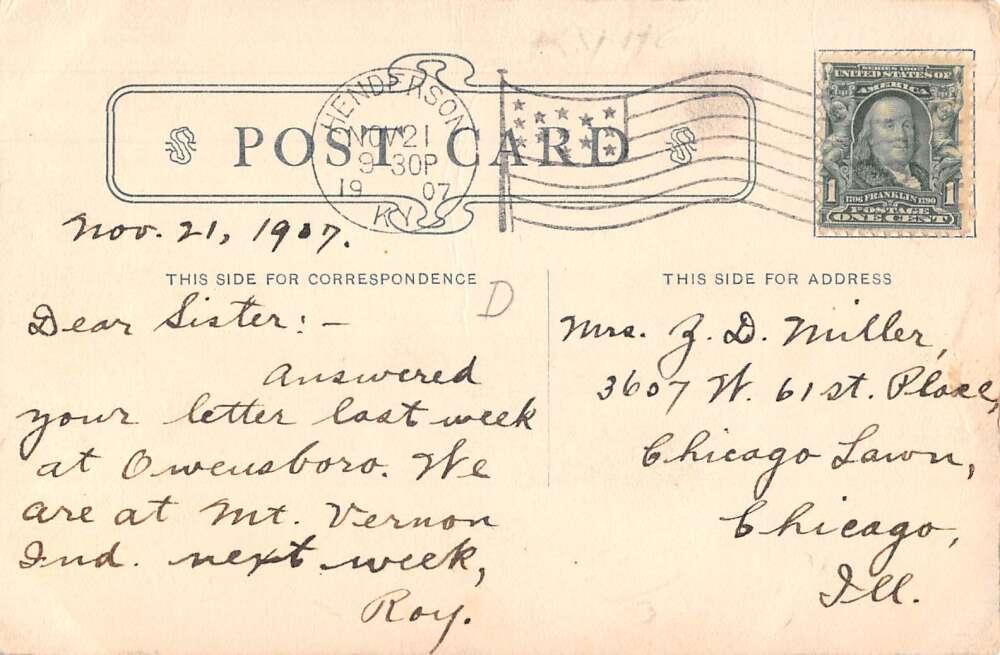 HENDERSON
NOV 21
9-30P
19 07
KY.
POST CARD
SERIES 1902
UNITED STATES OF
AMERICA
1 1
1706 FRANKLIN 1790
POSTAGE
ONE CENT
Nov. 21, 1907.
THIS SIDE FOR CORRESPONDENCE
D
Dear Sister:-
Answered
your letter last week
at Owensboro. We
are at Mt. Vernon
Ind. next week,
Roy.
THIS SIDE FOR ADDRESS
Mrs. Z. D. Miller,
3607 W. 61st. Place,
Chicago Lawn,
Chicago,
Ill.